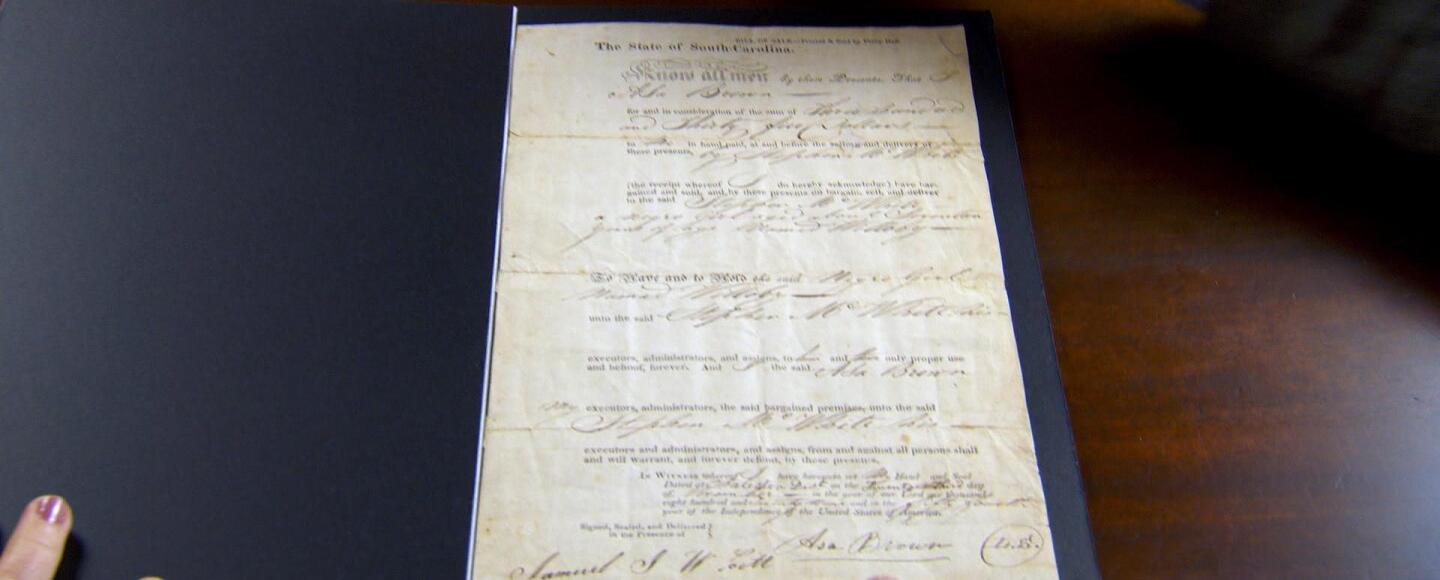 BILL OF SALE.—Printed & Sold by
The State of South-Carolina.
Know all men by these Presents, That I
Asa Brown
for and in consideration of the sum of Three hundred
and Thirty five Dollars
to me in hand paid, at and before the sealing and delivery of
these presents, by Stephen Mc White
(the receipt whereof I do hereby acknowledge) have bar-
gained and sold, and, by these presents do bargain, sell, and deliver
to the said Stephen Mc White
a negro Girl about
years of age Named
To Have and to Hold the said Negro Girl
Named
unto the said Stephen Mc White his
executors, administrators, and assigns, to him and only proper use
and behoof, forever. And I the said Asa Brown
my executors, administrators, the said bargained premises, unto the said
Stephen Mc White his
executors and administrators, and assigns, from and against all persons shall
and will warrant, and forever defend, by these presents.
In Witness whereof I have hereunto set my Hand and Seal
Dated at Dist. on the day
of in the year of our Lord one thousand
eight hundred and and in the
year of the Independence of the United States of America.
Signed, Sealed, and Delivered
in the Presence of
Asa Brown (L.S.)
Samuel J W